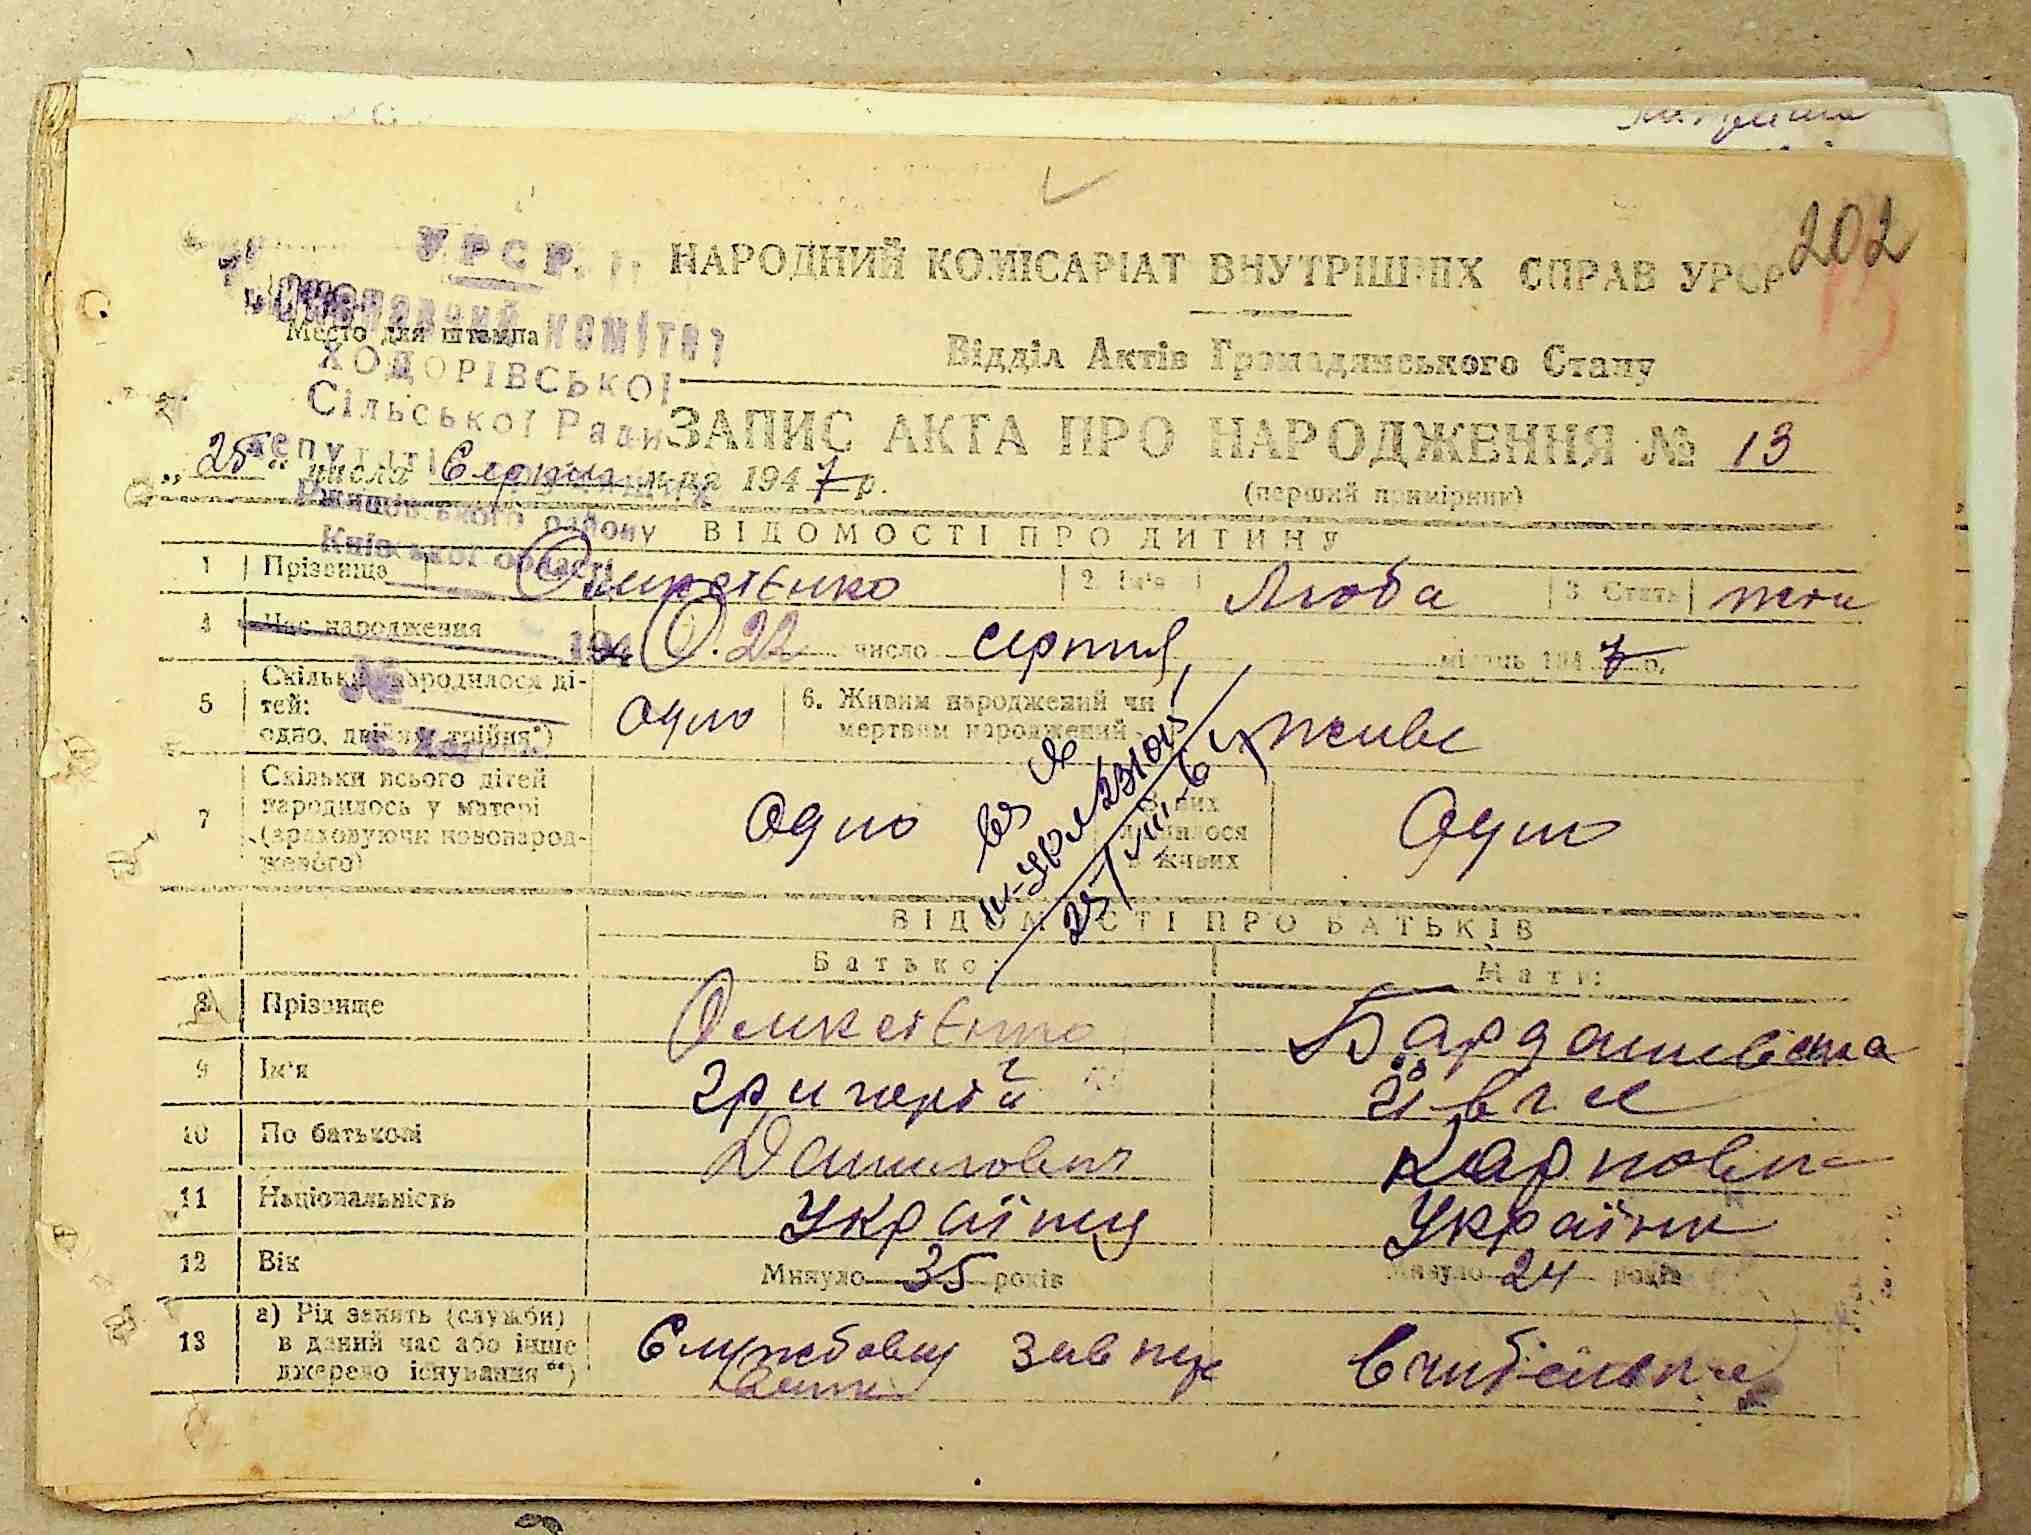 202
У Р С Р.
НАРОДНИЙ КОМІСАРІАТ ВНУТРІШНІХ СПРАВ УРСР
Виконавчий комітет
Место для штампа
Відділ Актів Громадянського Стану
ХОДОРІВСЬКОЇ
Сільської Ради
ЗАПИС АКТА ПРО НАРОДЖЕННЯ № 13
„25" числа Серпня м-ця 1947 р.
(перший примірник)
Ржищівського району
Київської області
ВІДОМОСТІ ПРО ДИТИНУ
1 Прізвище 2. Ім'я Люба 3. Стать жін
4 Час народження 22 число серпня місяць 1947 р.
5 Скільки народилося дітей: одно, двійня, трійня*) одно 6. Живим народжений чи мертвим народжений живе
7 Скільки всього дітей народилось у матері (враховуючи новонародженого) Одно З них лишилося в живих Одно
ВІДОМОСТІ ПРО БАТЬКІВ
Батько: Мати:
8 Прізвище
9 Ім'я Григорій
10 По батькові Данилович Карповна
11 Національність Українц Українк
12 Вік Минуло 35 років Минуло 24 років
13 а) Рід занять (служби) в даний час або інше джерело існування**) Службовц